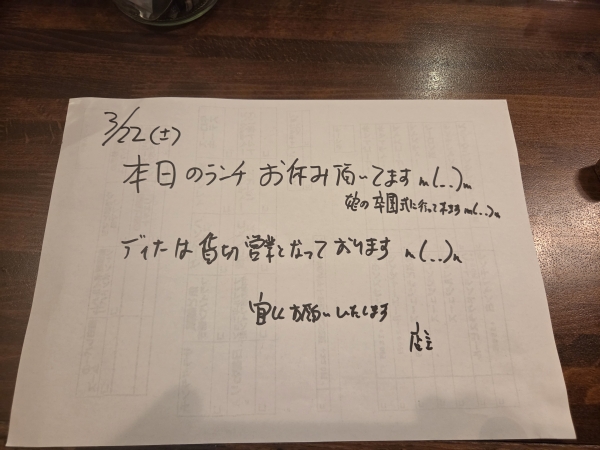 3/22(土)
本日のランチ お休み頂いてます m(..)m
娘の卒園式に行って来ます m(..)m
ディナーは貸切営業となっております m(..)m
宜しくお願いいたします
店主